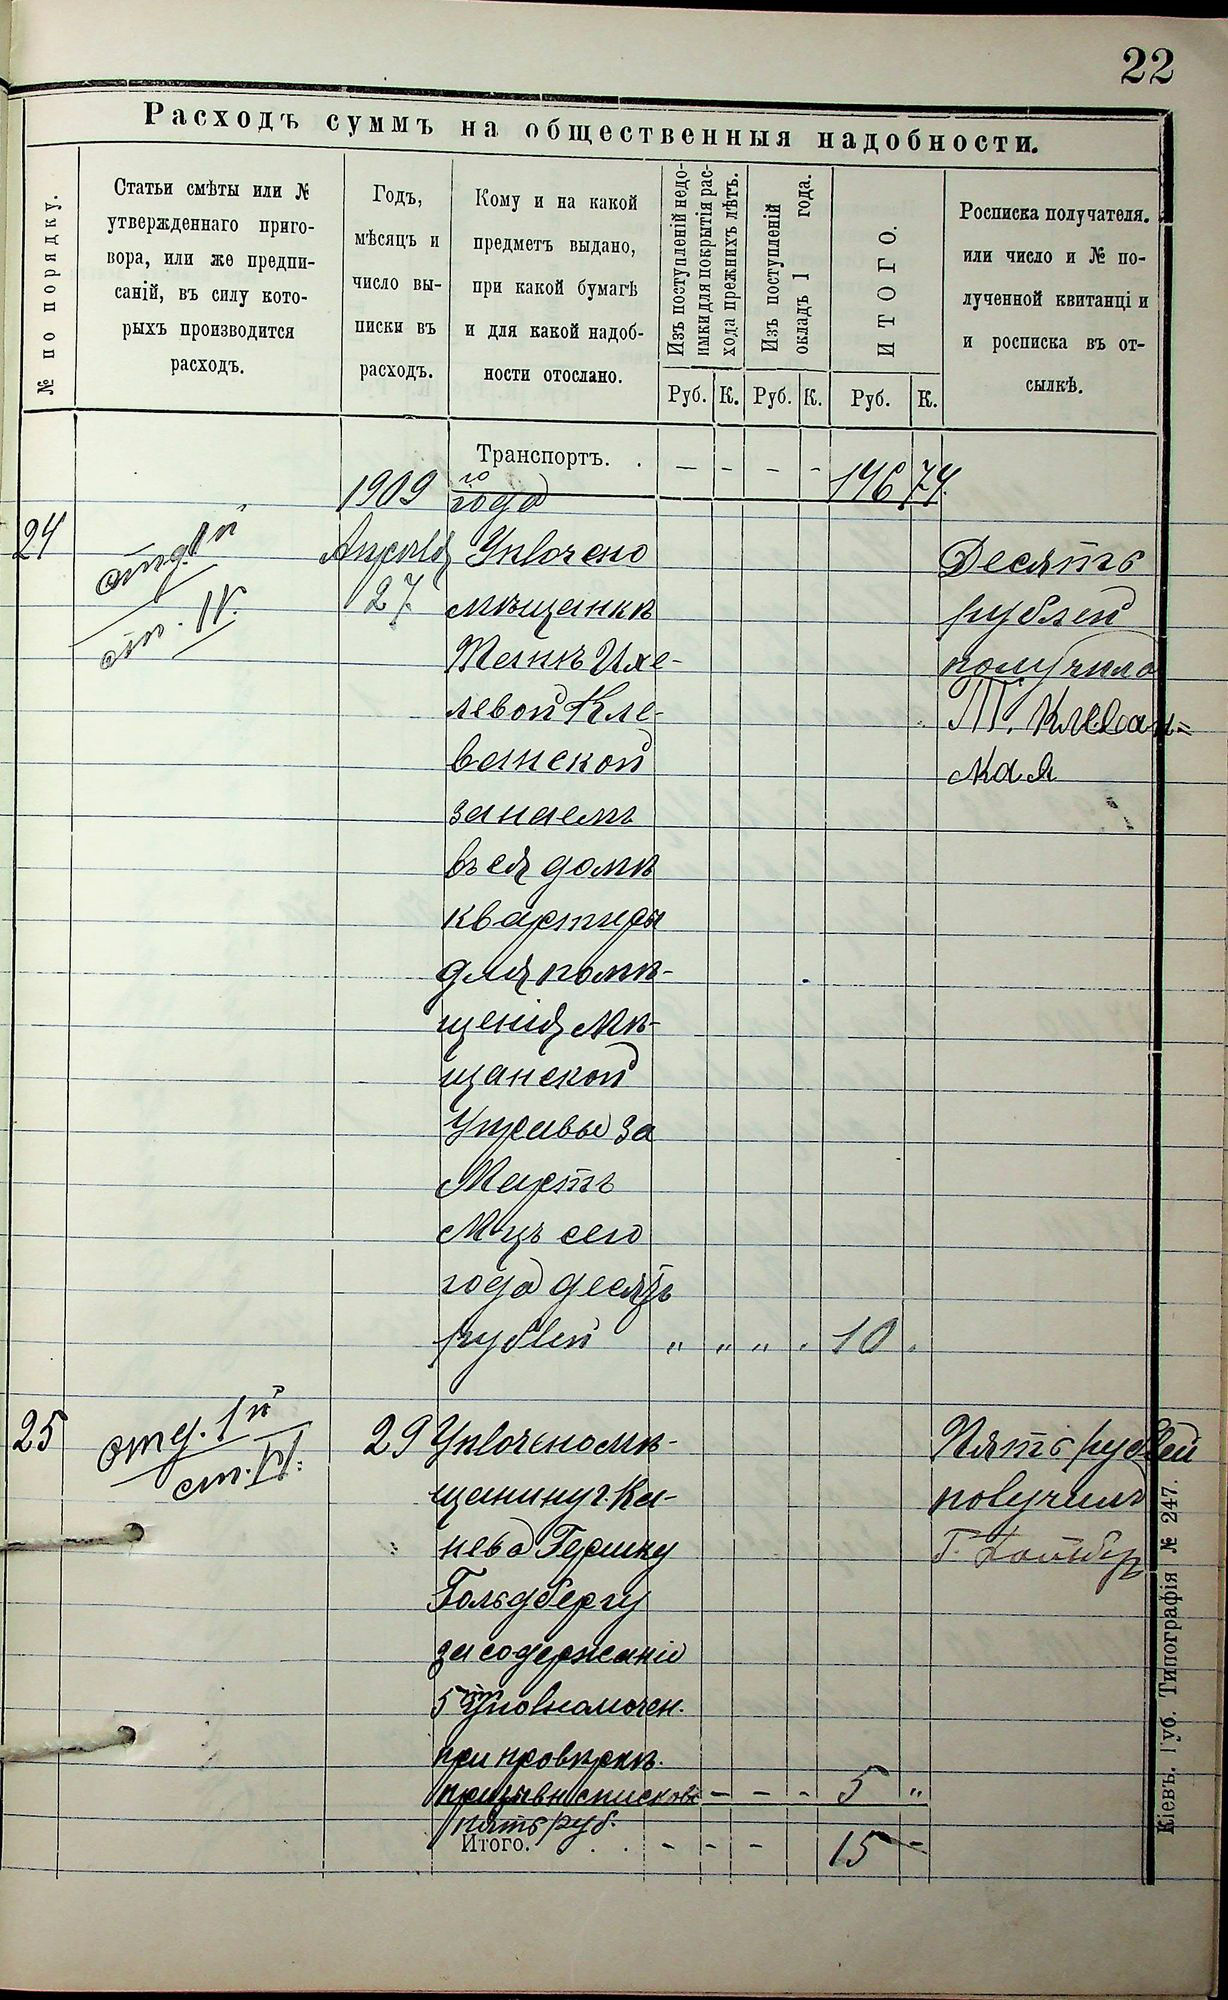 22
Расходъ суммъ на общественныя надобности.
№ по порядку.
Статьи смѣты или №
утвержденнаго приго-
вора, или же предпи-
саній, въ силу кото-
рыхъ производится
расходъ.
Годъ,
мѣсяцъ и
число вы-
писки въ
расходъ.
Кому и на какой
предметъ выдано,
при какой бумагѣ
и для какой надоб-
ности отослано.
Изъ поступленій недо-
имки для покрытія рас-
хода прежнихъ лѣтъ.
Изъ поступленій
окладъ 1 года.
ИТОГО.
Росписка получателя.
или число и № по-
лученной квитанці и
и росписка въ от-
сылкѣ.
Руб. К. Руб. К. Руб. К.
Транспортъ. . — - - - 196 74.
1909 го года
24
отд. 1й
ст. IV.
Апрѣля
27
Уплочено
мѣщанкѣ
Танкѣ Ихе-
левой Кле-
ванской
за наемъ
въ ея домѣ
квартиры
для помѣ-
щенія Мѣ-
щанской
Управы за
Мартъ
М-цъ сего
года десять
рублей „ „ „ . 10 „
Десять
рублей
получила
Т. Клеван=
кая
25
отд. 1й
ст. VI.
29
Уплочено мѣ-
щанину г. Ка-
нева Гершку
Гольдбергу
за содержаніе
5ти уполномочен.
при провѣркѣ
призывн списковъ — - - 5 „
пять руб.
Пять рублей
получилъ
Итого. . . - - - 15 -
Кіевъ. Губ. Типографія № 247.